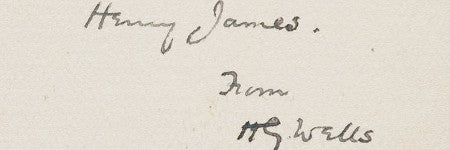 Henry James.
From
HG Wells